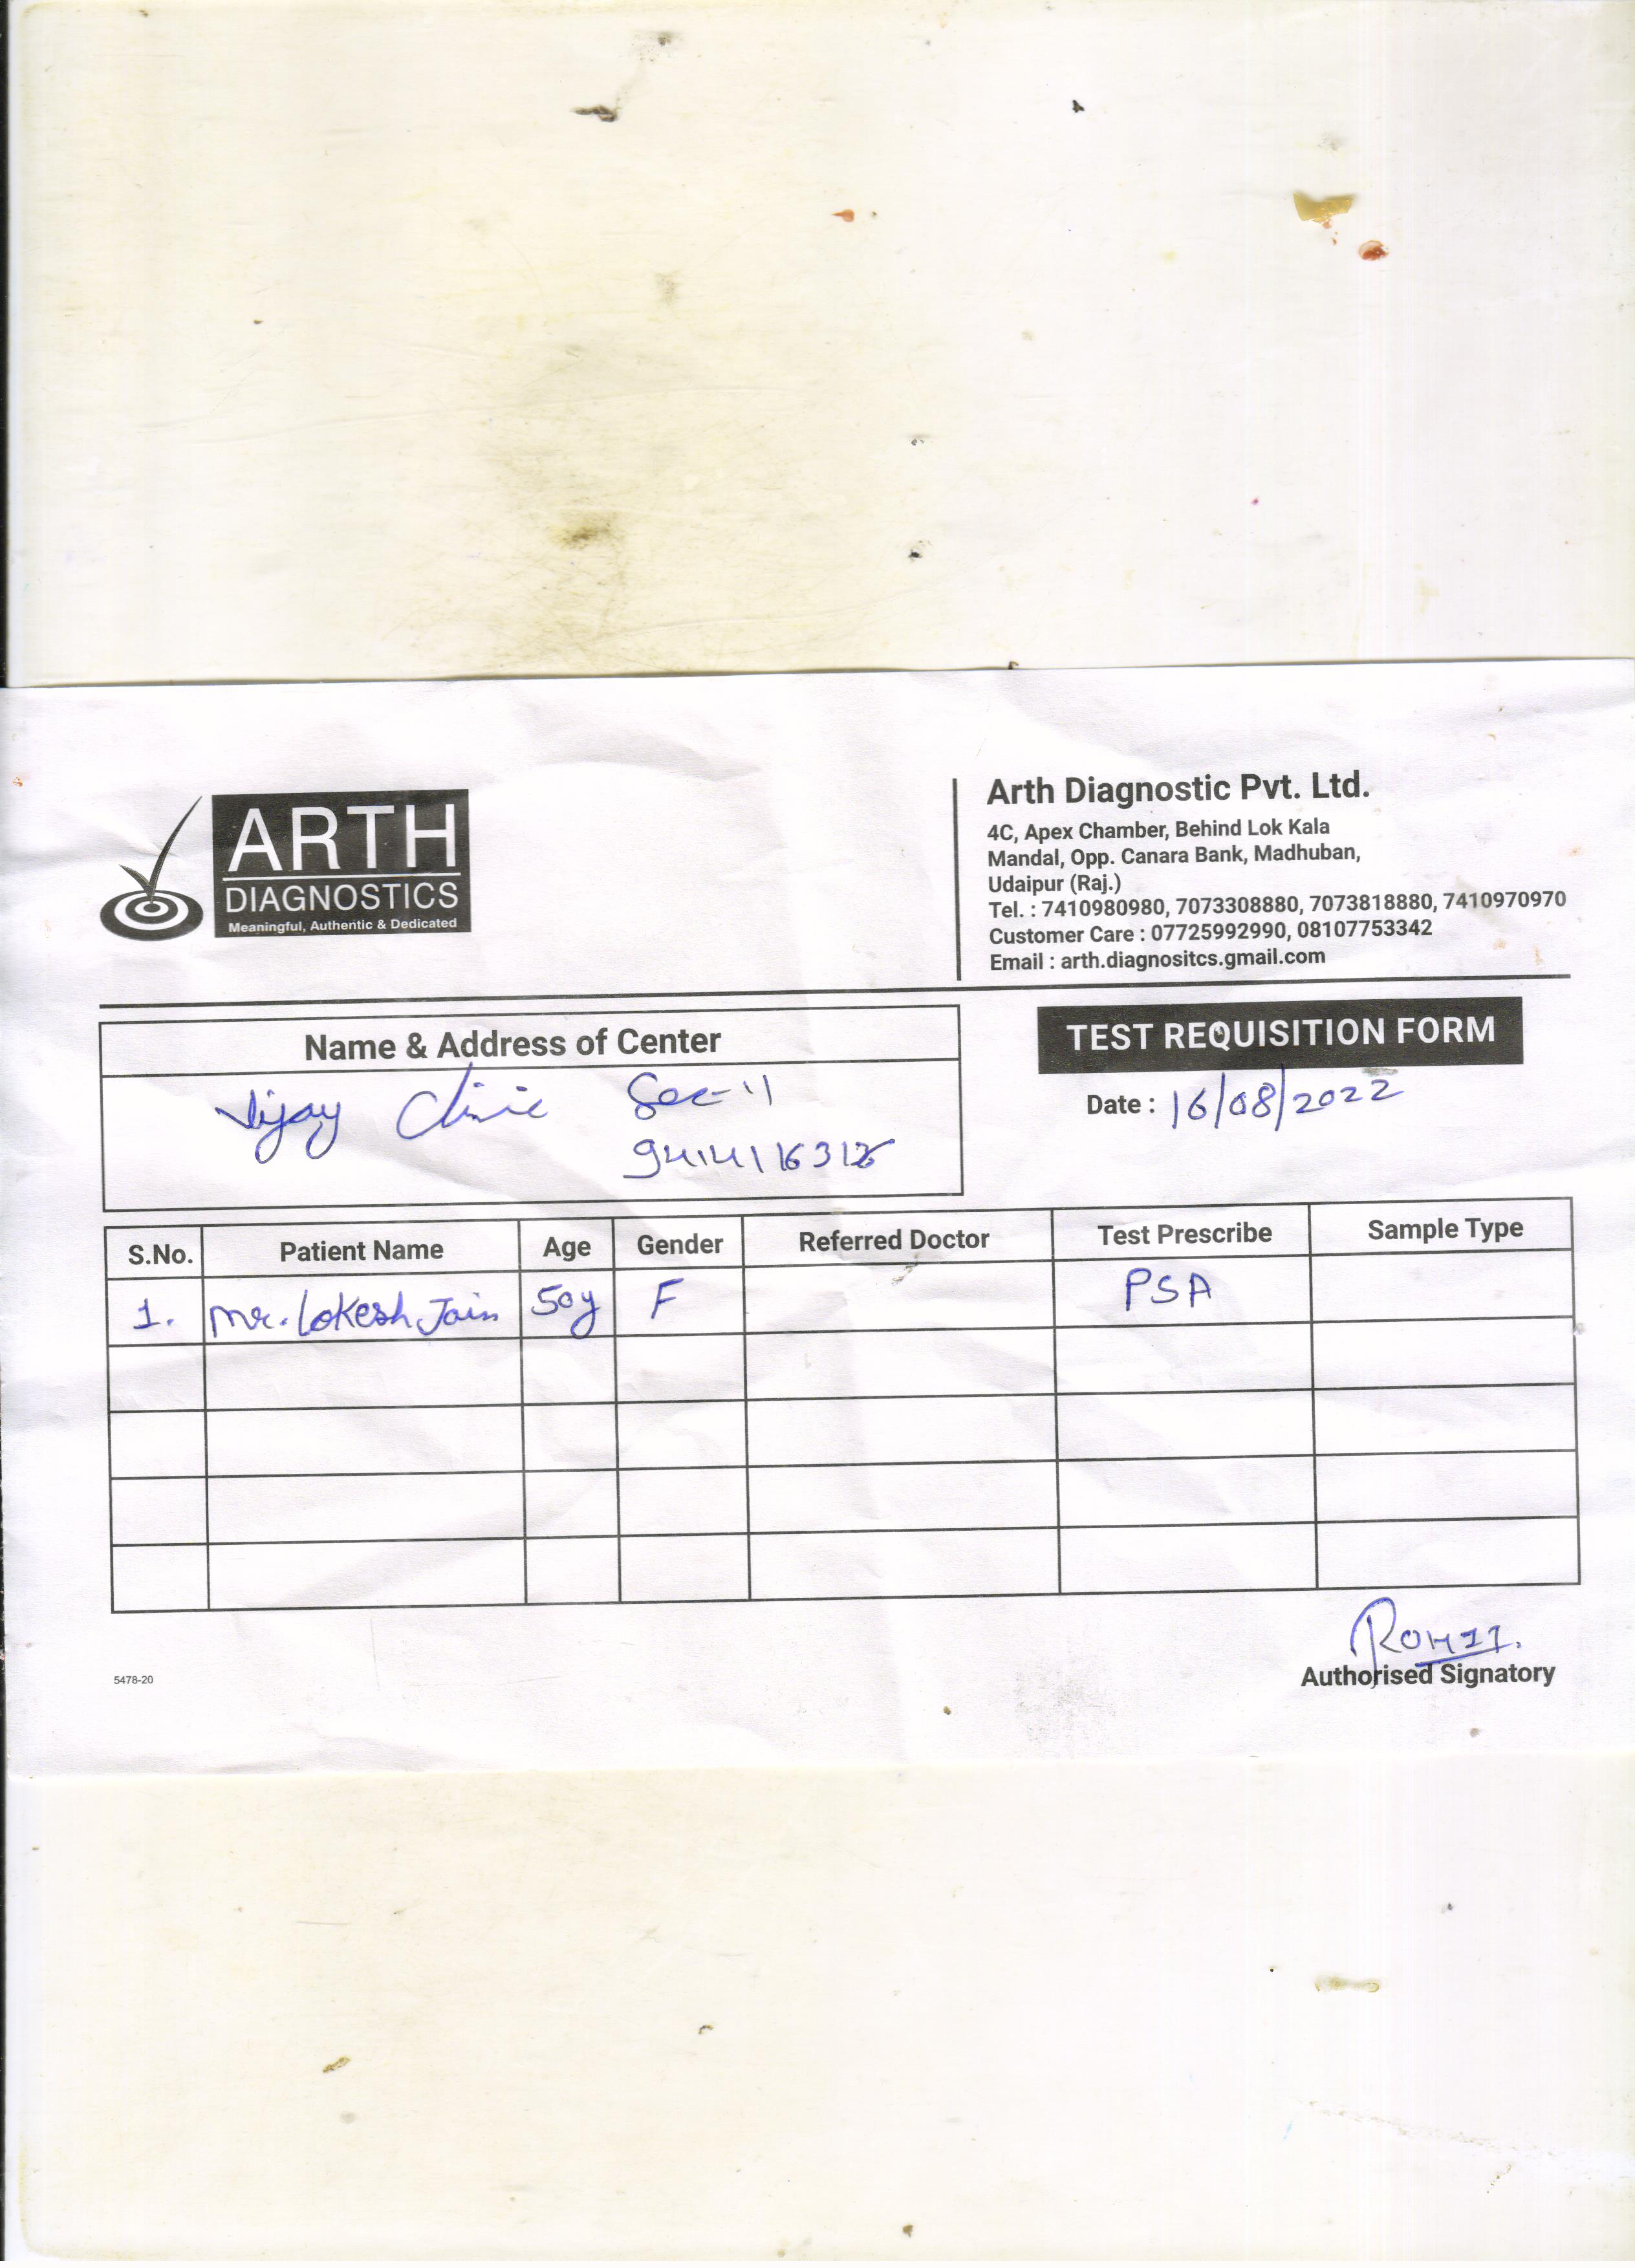 ARTH
DIAGNOSTICS
Meaningful, Authentic & Dedicated
Arth Diagnostic Pvt. Ltd.
4C, Apex Chamber, Behind Lok Kala
Mandal, Opp. Canara Bank, Madhuban,
Udaipur (Raj.)
Tel. : 7410980980, 7073308880, 7073818880, 7410970970
Customer Care : 07725992990, 08107753342
Email : arth.diagnositcs.gmail.com
Name & Address of Center
Vijay Clinic Sec-11
TEST REQUISITION FORM
Date : 16/08/2022
S.No. Patient Name Age Gender Referred Doctor Test Prescribe Sample Type
1. Mr. Lokesh Jain 50y F PSA
ROHIT.
Authorised Signatory
5478-20